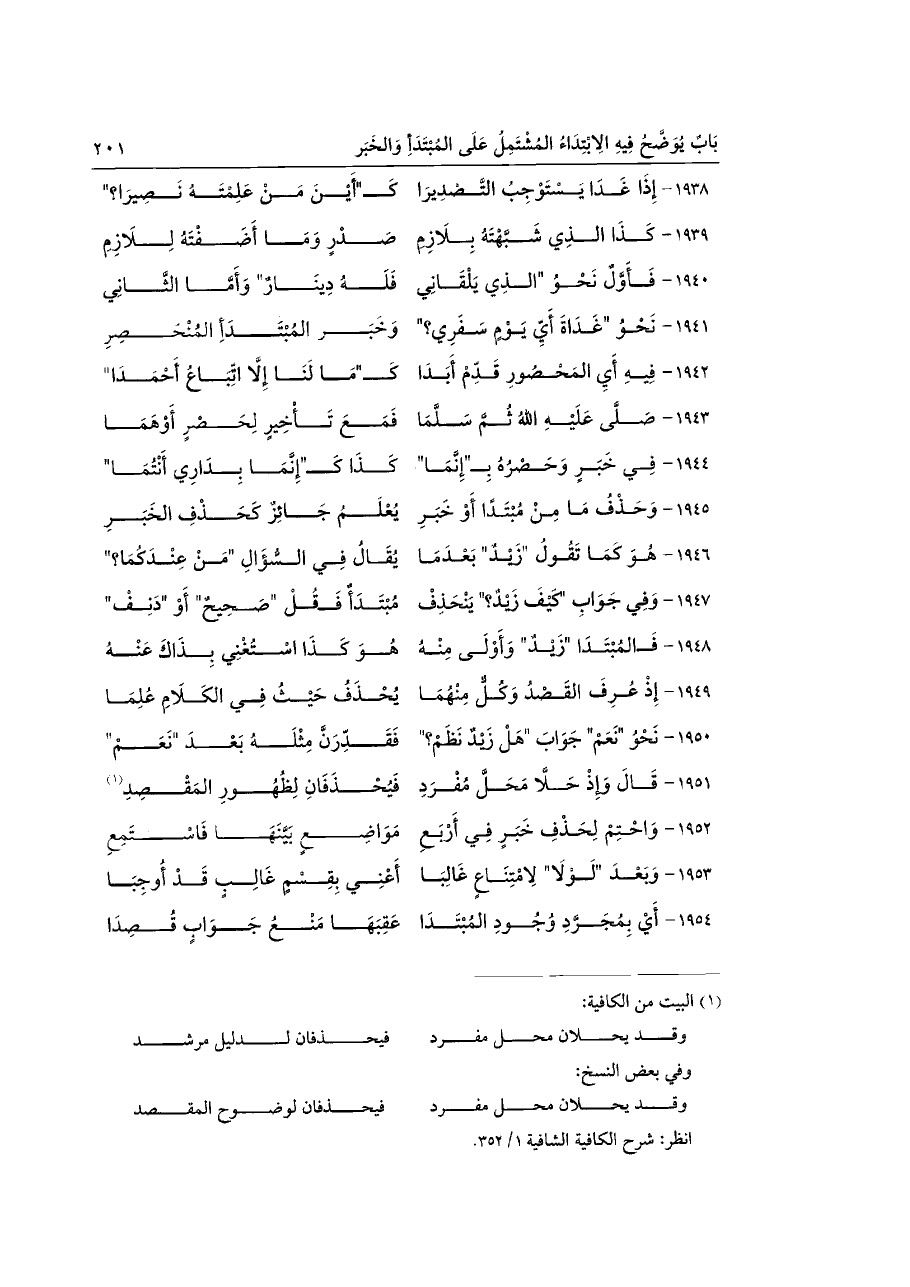 بَابٌ يُوَضَّحُ فِيهِ الِابْتِدَاءُ المُشْتَمِلُ عَلَى المُبْتَدَأِ وَالخَبَر ٢٠١
١٩٣٨- إِذَا غَدَا يَسْتَوْجِبُ التَّصْدِيرَا كَـ"أَيْنَ مَنْ عَلِمْتَهُ نَصِيرَا؟"
١٩٣٩- كَذَا الذِي شَبَّهْتَهُ بِلَازِمِ صَدْرٍ وَمَا أَضَفْتَهُ لِلَازِمِ
١٩٤٠- فَأَوَّلٌ نَحْوُ "الذِي يَلْقَانِي فَلَهُ دِينَارٌ" وَأَمَّا الثَّانِي
١٩٤١- نَحْوُ "غَدَاةَ أَيِّ يَوْمٍ سَفَرِي؟" وَخَبَرِ المُبْتَدَأِ المُنْحَصِرِ
١٩٤٢- فِيهِ أَيِ المَحْصُورِ قَدِّمْ أَبَدَا كَـ"مَا لَنَا إِلَّا اتِّبَاعُ أَحْمَدَا"
١٩٤٣- صَلَّى عَلَيْهِ اللهُ ثُمَّ سَلَّمَا فَمَعَ تَأْخِيرٍ لِحَصْرٍ أَوْهَمَا
١٩٤٤- فِي خَبَرٍ وَحَصْرُهُ بِـ"إِنَّمَا" كَذَا كَـ"إِنَّمَا بِدَارِي أَنْتُمَا"
١٩٤٥- وَحَذْفُ مَا مِنْ مُبْتَدًا أَوْ خَبَرِ يُعْلَمُ جَائِزٌ كَحَذْفِ الخَبَرِ
١٩٤٦- هُوَ كَمَا تَقُولُ "زَيْدٌ" بَعْدَمَا يُقَالُ فِي السُّؤَالِ "مَنْ عِنْدَكُمَا؟"
١٩٤٧- وَفِي جَوَابِ "كَيْفَ زَيْدٌ؟" يَنْحَذِفْ مُبْتَدَأٌ فَقُلْ "صَحِيحٌ" أَوْ "دَنِفْ"
١٩٤٨- فَالمُبْتَدَا "زَيْدٌ" وَأَوْلَى مِنْهُ هُوَ كَذَا اسْتُغْنِي بِذَاكَ عَنْهُ
١٩٤٩- إِذْ عُرِفَ القَصْدُ وَكُلٌّ مِنْهُمَا يُحْذَفُ حَيْثُ فِي الكَلَامِ عُلِمَا
١٩٥٠- نَحْوُ "نَعَمْ" جَوَابَ "هَلْ زَيْدٌ نَظَمْ؟" فَقَدِّرَنَّ مِثْلَهُ بَعْدَ "نَعَمْ"
١٩٥١- قَالَ وَإِذْ حَلَّا مَحَلَّ مُفْرَدِ فَيُحْذَفَانِ لِظُهُورِ المَقْصِدِ(١)
١٩٥٢- وَاحْتِمْ لِحَذْفِ خَبَرٍ فِي أَرْبَعِ مَوَاضِعٍ بَيَّنَهَا فَاسْتَمِعِ
١٩٥٣- وَبَعْدَ "لَوْلَا" لِامْتِنَاعٍ غَالِبَا أَعْنِي بِقِسْمٍ غَالِبٍ قَدْ أُوجِبَا
١٩٥٤- أَيْ بِمُجَرَّدِ وُجُودِ المُبْتَدَا عَقِبَهَا مَنْعُ جَوَابٍ قُصِدَا
(١) البيت من الكافية:
وقد يحلان محل مفرد فيحذفان لدليل مرشد
وفي بعض النسخ:
وقد يحلان محل مفرد فيحذفان لوضوح المقصد
انظر: شرح الكافية الشافية ١/ ٣٥٢.